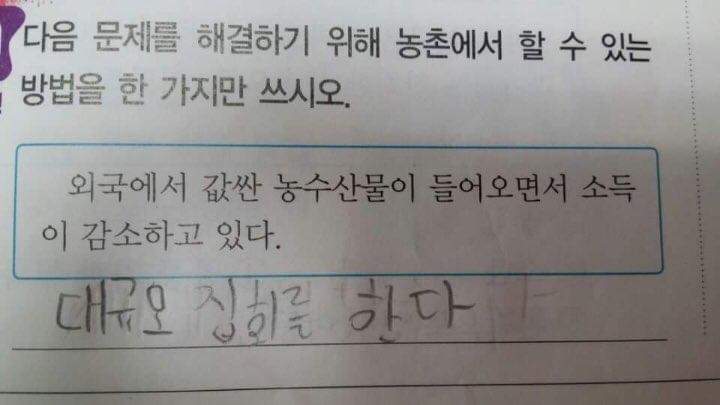 다음 문제를 해결하기 위해 농촌에서 할 수 있는
방법을 한 가지만 쓰시오.
외국에서 값싼 농수산물이 들어오면서 소득
이 감소하고 있다.
대규모 집회를 한다